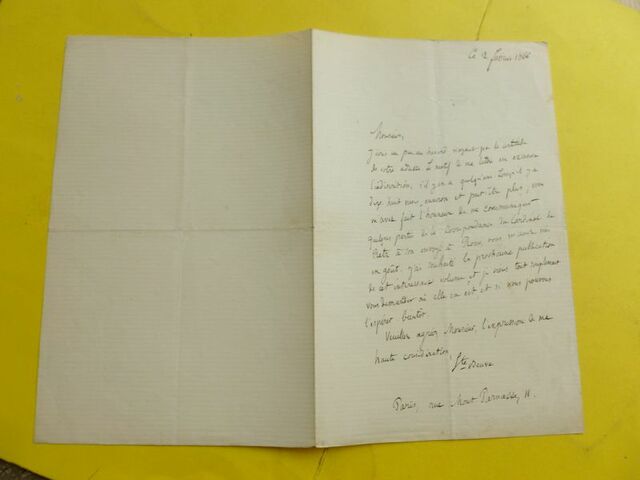 Ce 2 février 1866
Monsieur,
J'ose un peu au hasard
de votre adresse. Le motif de ma lettre en excusera
l'indiscrétion, s'il y en a quelqu'une. Lorsqu'il y a
dix huit mois, environ et peut-être plus, vous
m'avez fait l'honneur de me communiquer
quelques parties de la Correspondance du Cardinal de
Retz à son envoyé à Rome, vous m'aviez mis
en goût. J'ai souhaité la prochaine publication
de cet intéressant volume et je viens tout simplement
vous demander où elle en est et si nous pouvons
l'espérer bientôt.
Veuillez agréer, Monsieur, l'expression de ma
haute considération,
Ste Beuve
Paris, rue Mont Parnasse, 11.